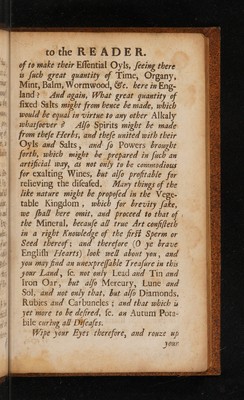 to the READER.
of to make their Essential Oyls, seeing there
is such great quantity of Time, Organy,
Mint, Balm, Wormwood, &c. here in Eng-
land? And again, What great quantity of
fixed Salts might from hence be made, which
would be equal in virtue to any other Alkaly
whatsoever? Also Spirits might be made
from these Herbs, and these united with their
Oyls and Salts, and so Powers brought
forth, which might be prepared in such an
artificial way, as not only to be commodious
for exalting Wines, but also profitable for
relieving the diseased. Many things of the
like nature might be proposed in the Vege-
table Kingdom, which for brevity sake,
we shall here omit, and proceed to that of
the Mineral, because all true Art consisteth
in a right Knowledge of the first Sperm or
Seed thereof; and therefore (O ye brave
English Hearts) look well about you, and
you may find an unexpressable Treasure in this
your Land, sc. not only Lead and Tin and
Iron Oar, but also Mercury, Lune and
Sol, and not only that, but also Diamonds,
Rubies and Carbuncles; and that which is
yet more to be desired, sc. an Autum Pota-
bile curing all Diseases.
Wipe your Eyes therefore, and rouze up
your